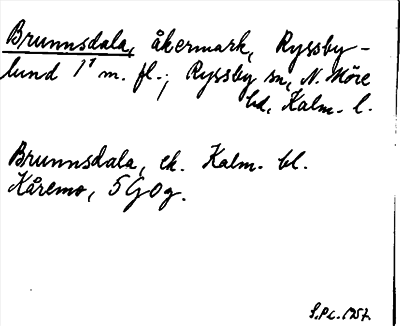 Brunnsdala, åkermark, Ryssby-
lund 1¹ m. fl.; Ryssby sn, N. Möre
hd, Kalm. l.
Brunnsdala, ek. Kalm. bl.
Kåremo, 5G 0g.